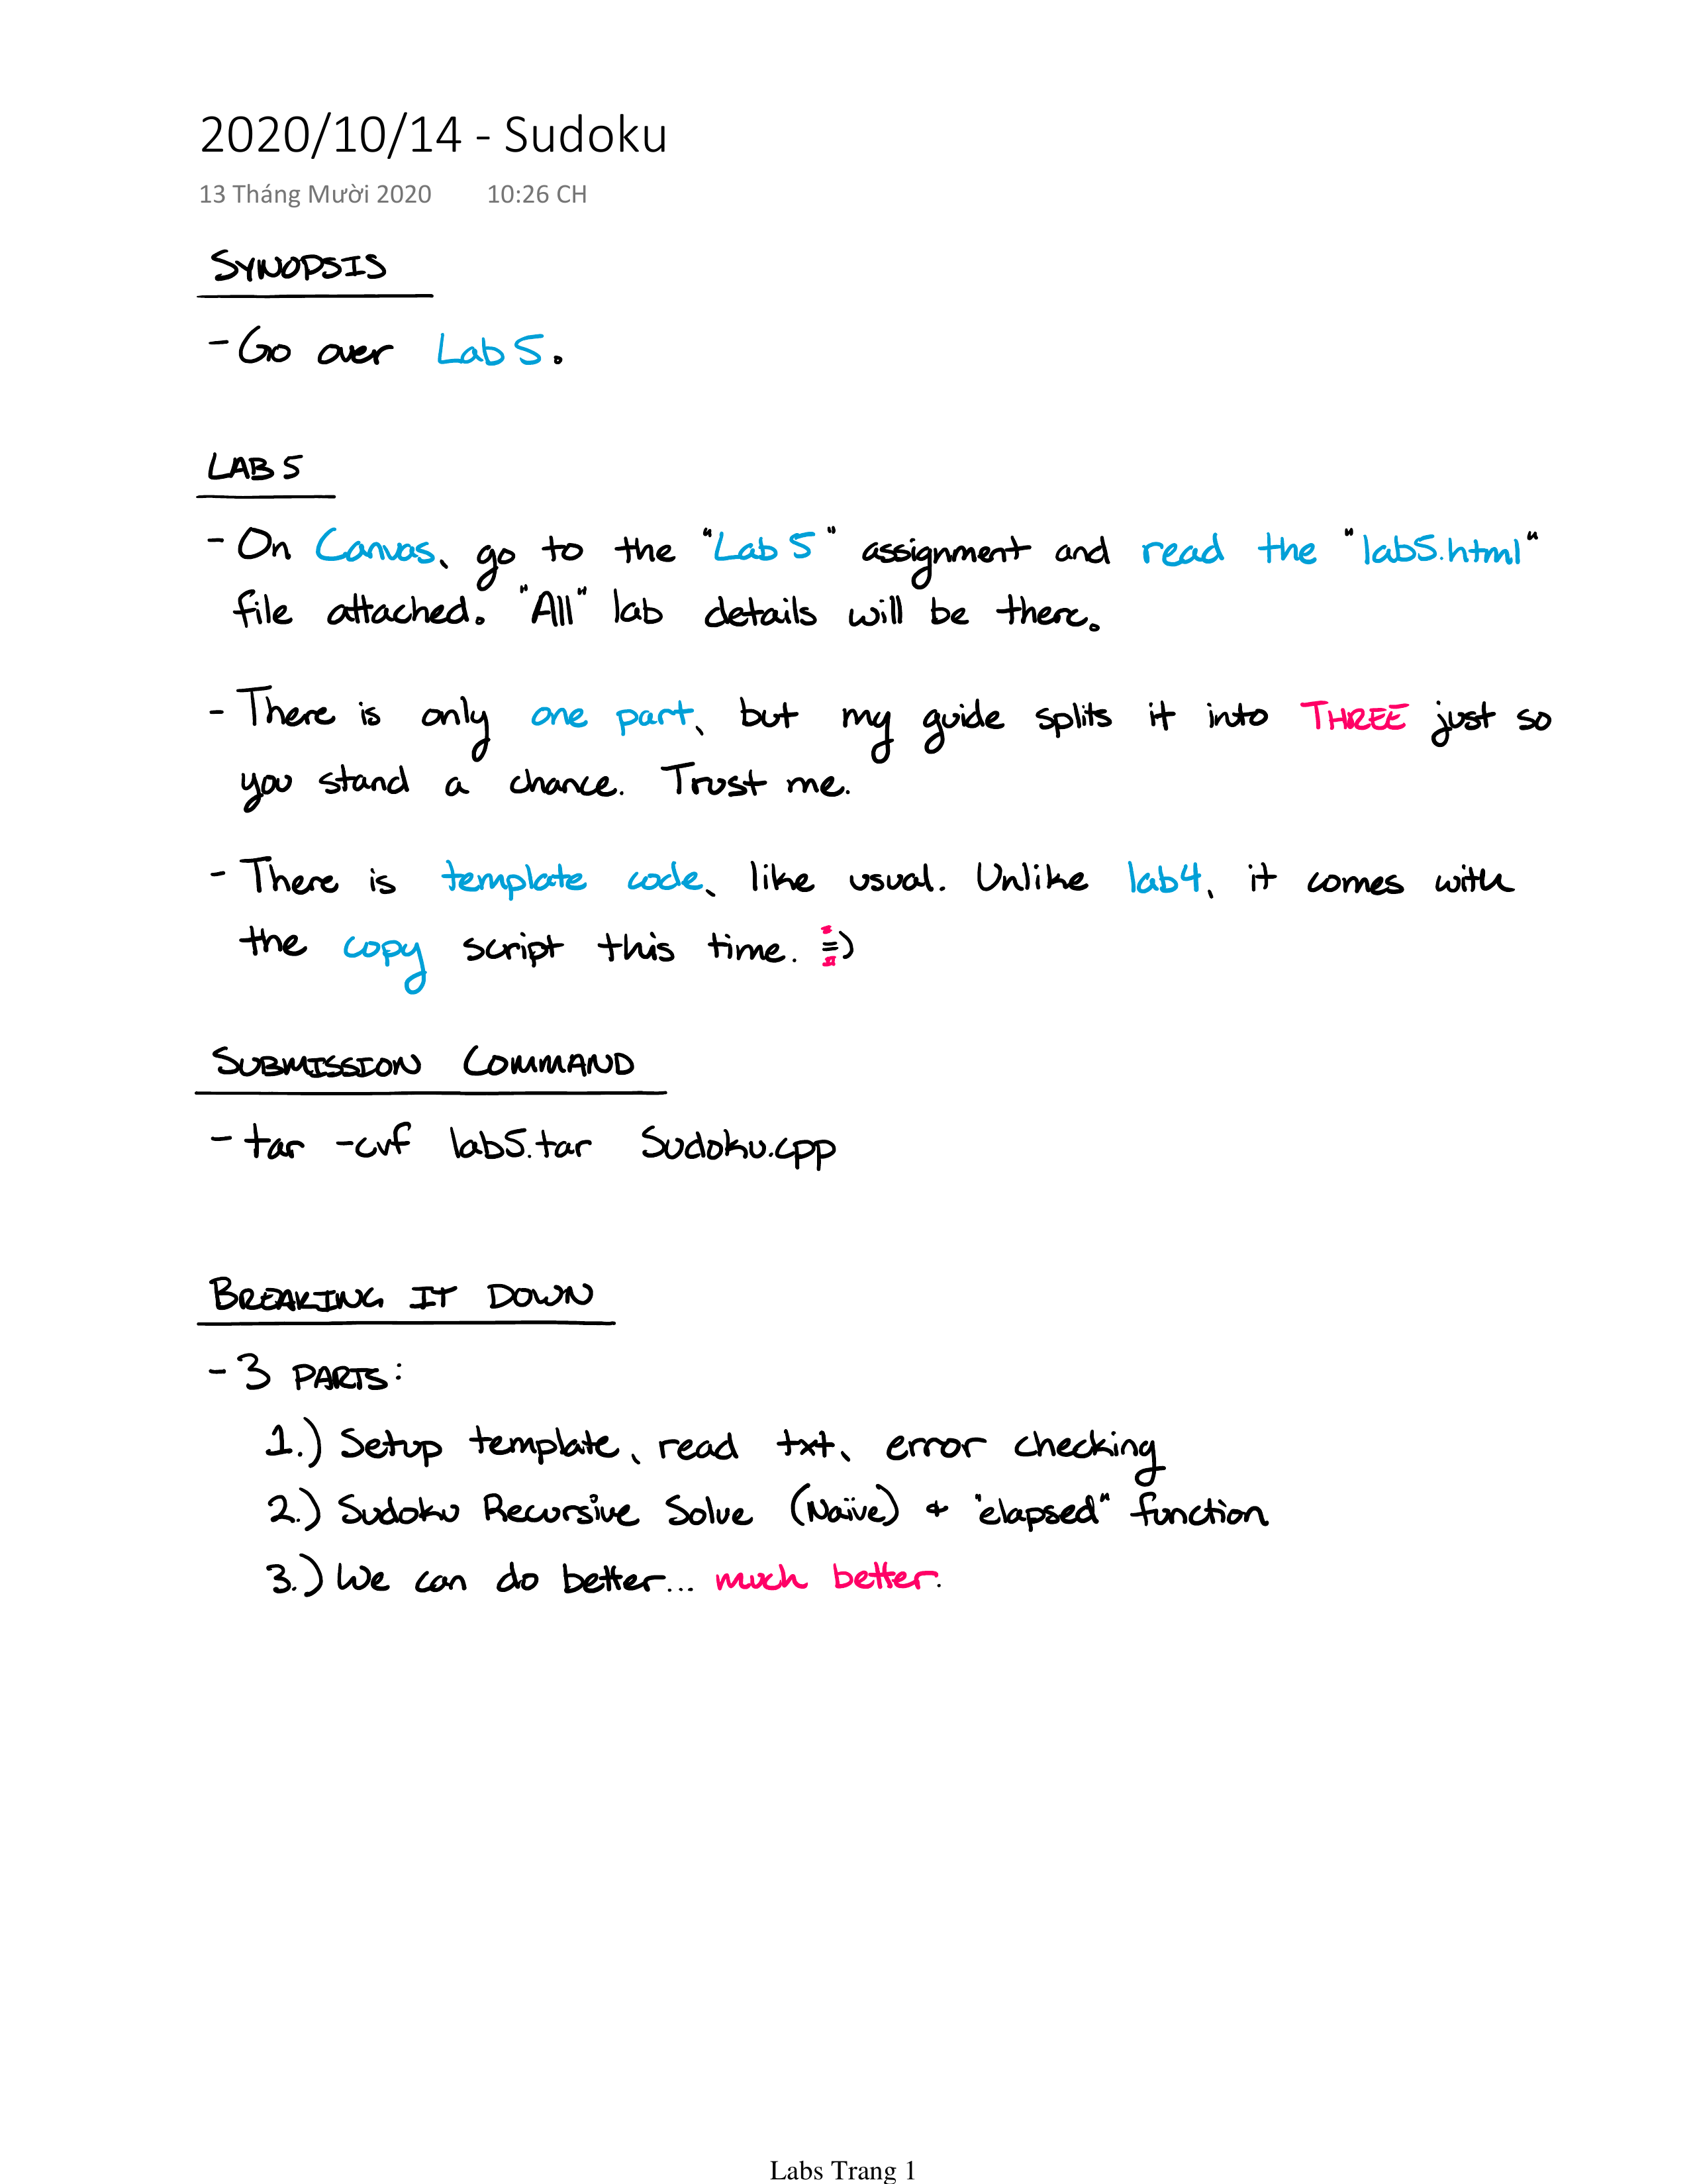 2020/10/14 - Sudoku
13 Tháng Mười 2020 10:26 CH
SYNOPSIS
- Go over Lab 5.
LAB 5
- On Canvas, go to the "Lab 5" assignment and read the "lab5.html"
file attached. "All" lab details will be there.
- There is only one part, but my guide splits it into THREE just so
you stand a chance. Trust me.
- There is template code, like usual. Unlike lab4, it comes with
the copy script this time. =)
SUBMISSION COMMAND
- tar -cvf lab5.tar Sudoku.cpp
BREAKING IT DOWN
- 3 PARTS:
1.) Setup template, read txt, error checking
2.) Sudoku Recursive Solve (Naïve) + "elapsed" function
3.) We can do better... much better.
Labs Trang 1